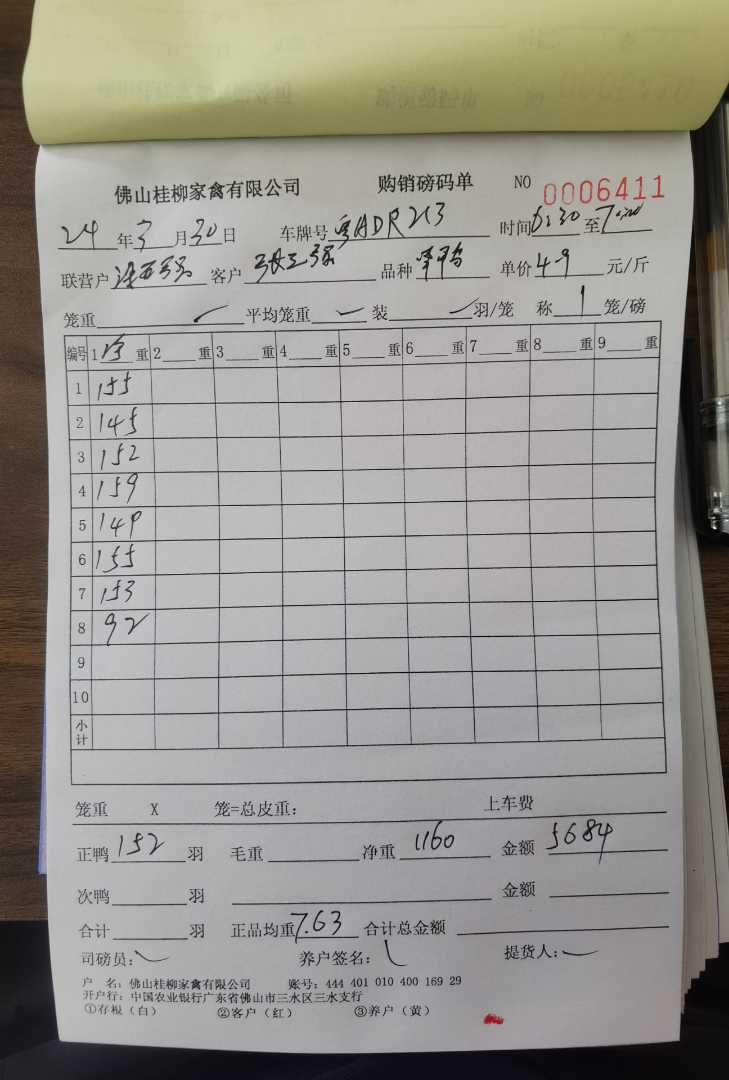 佛山桂柳家禽有限公司 购销磅码单 NO 0006411
24年3月30日 车牌号 粤ADR213 时间6:30至7:00
联营户 客户 品种 单价4.9元/斤
笼重 平均笼重 装 羽/笼 称1笼/磅
编号 1 重 2 重 3 重 4 重 5 重 6 重 7 重 8 重 9 重
1 155
2 145
3 152
4 159
5 149
6 155
7 153
8 92
9
10
小计
笼重 X 笼=总皮重: 上车费
正鸭152羽 毛重 净重1160 金额5684
次鸭 羽 金额
合计 羽 正品均重7.63 合计总金额
司磅员: 养户签名: 提货人:
户 名: 佛山桂柳家禽有限公司 账号: 444 401 010 400 169 29
开户行: 中国农业银行广东省佛山市三水区三水支行
①存根(白) ②客户(红) ③养户(黄)